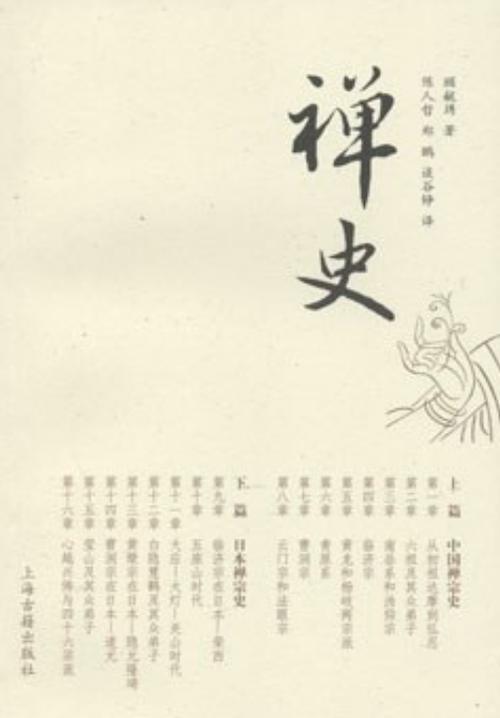 禅史
顾毓琇 著
陈人哲 郑鹏 谈谷铮 译
上篇 中国禅宗史
第一章 从初祖达摩到弘忍
第二章 六祖及其众弟子
第三章 南岳系和沩仰宗
第四章 临济宗
第五章 黄龙和杨岐两宗派
第六章 青原系
第七章 曹洞宗
第八章 云门宗和法眼宗
下篇 日本禅宗史
第九章 临济宗在日本—荣西
第十章 五座山时代
第十一章 大应—大灯—关山时代
第十二章 白隐慧鹤及其众弟子
第十三章 黄檗宗在日本—隐元隆琦
第十四章 曹洞宗在日本—道元
第十五章 莹山及其众弟子
第十六章 心越兴俦为四十六宗派
上海古籍出版社